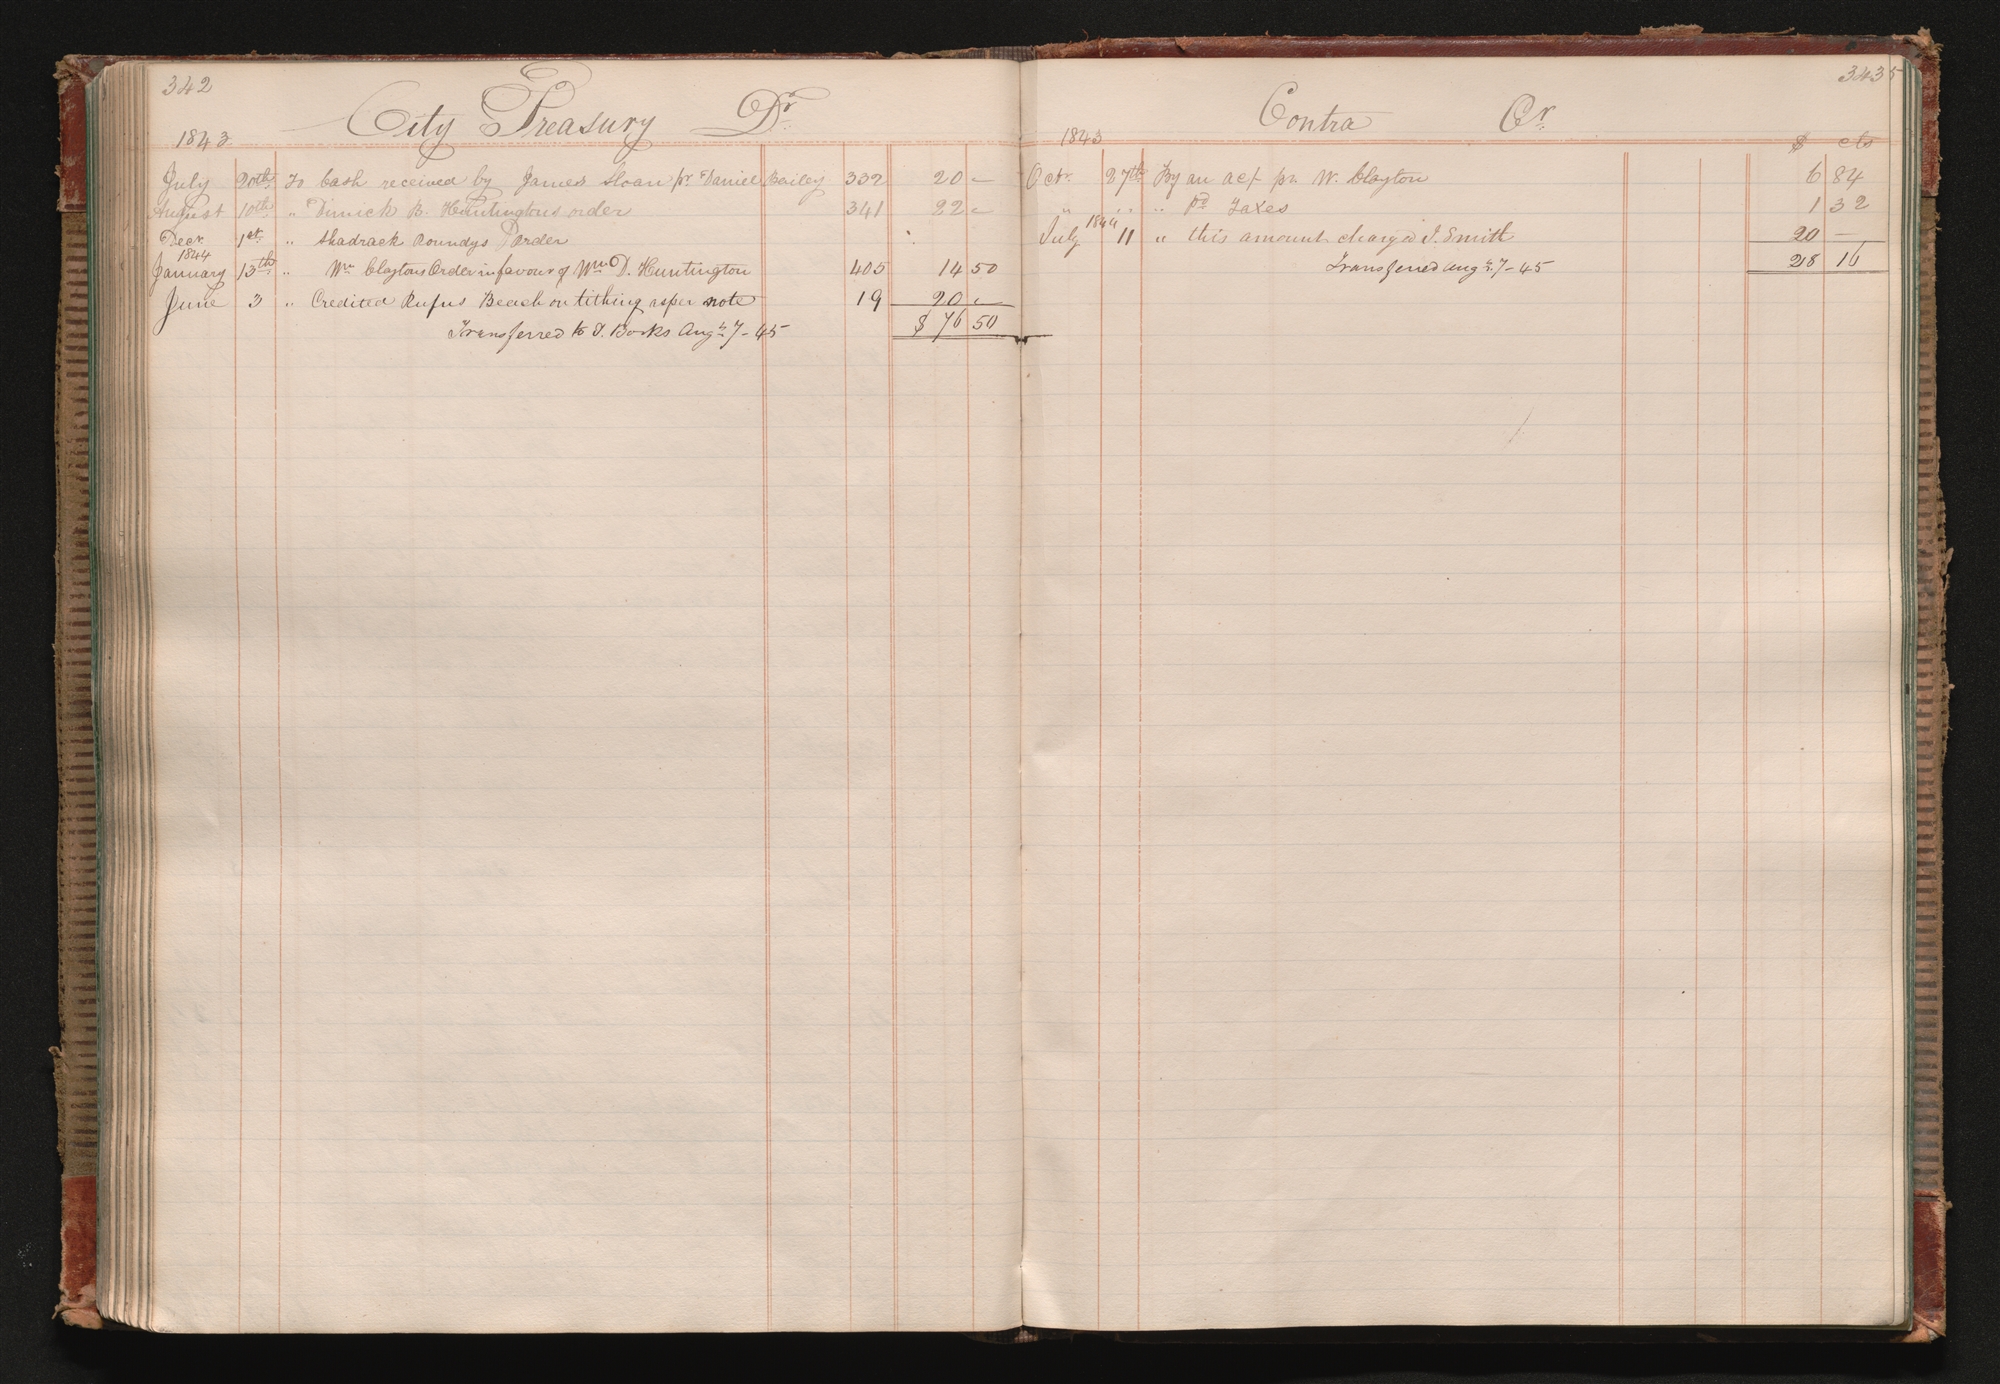 342
City Treasury Dr.
1843
July 20th. To Cash received by James Sloan pr. Daniel Bailey 332 20 –
August 10th. " Dimick B. Huntingtons order 341 22 –
Decr. 1st. " Shadrack Roundys Order
1844
January 13th " Wm Claytons Order in favour of Wm D. Huntington 405 14 50
June 3 " Credited Rufus Beach on tithing as per note 19 20 –
Transferred to T. Books Augt. 7 - 45 $ 76 50
3435
Contra Cr.
1843 $ cts
Octr. 27th. By an act pr. W. Clayton 6 84
" " " pd. Taxes 1 32
1844
July 11 " this amount charged J. Smith 20 –
Transferred Augt. 7 - 45 28 16